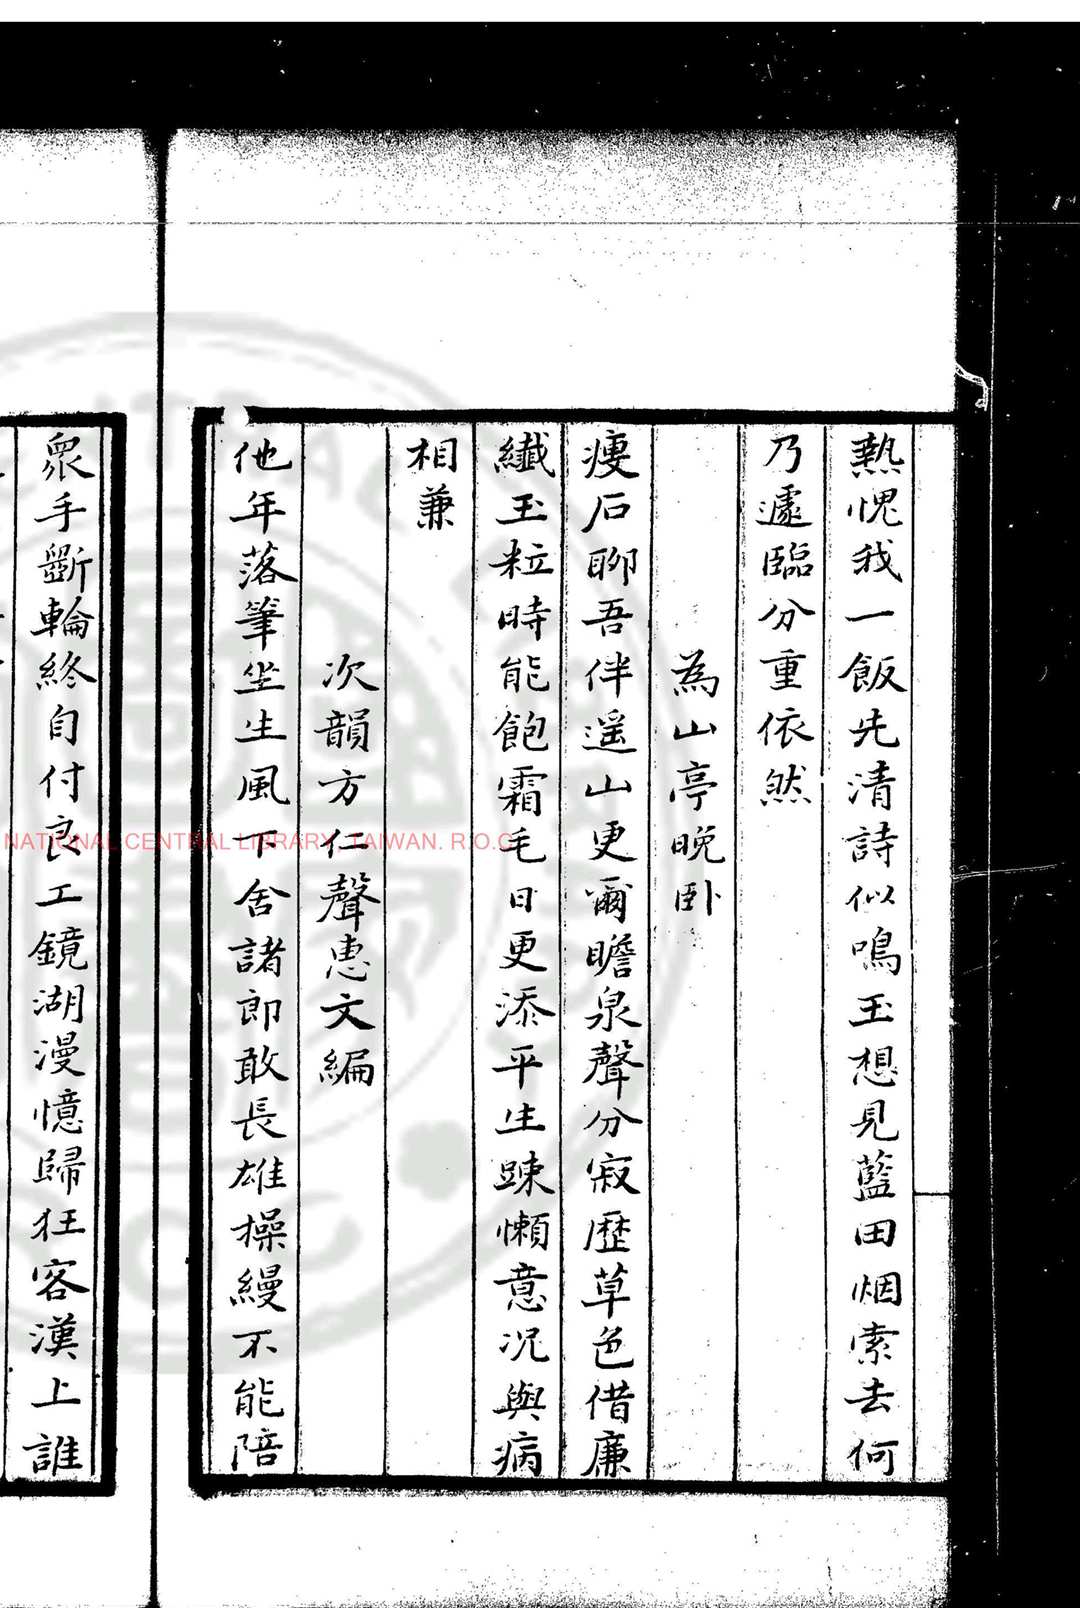 熱愧我一飯先清詩似鳴玉想見藍田烟索去何
乃遽臨分重依然
為山亭晚卧
瘦石聊吾伴遥山更爾瞻泉聲分寂歷草色借廉
纖玉粒時能飽霜毛日更添平生踈懶意况與病
相兼
次韻方仁聲惠文編
他年落筆坐生風下舍諸郎敢長雄操縵不能陪
衆手斵輪終自付良工鏡湖漫憶歸狂客漢上誰
NATIONAL CENTRAL LIBRARY, TAIWAN. R.O.C